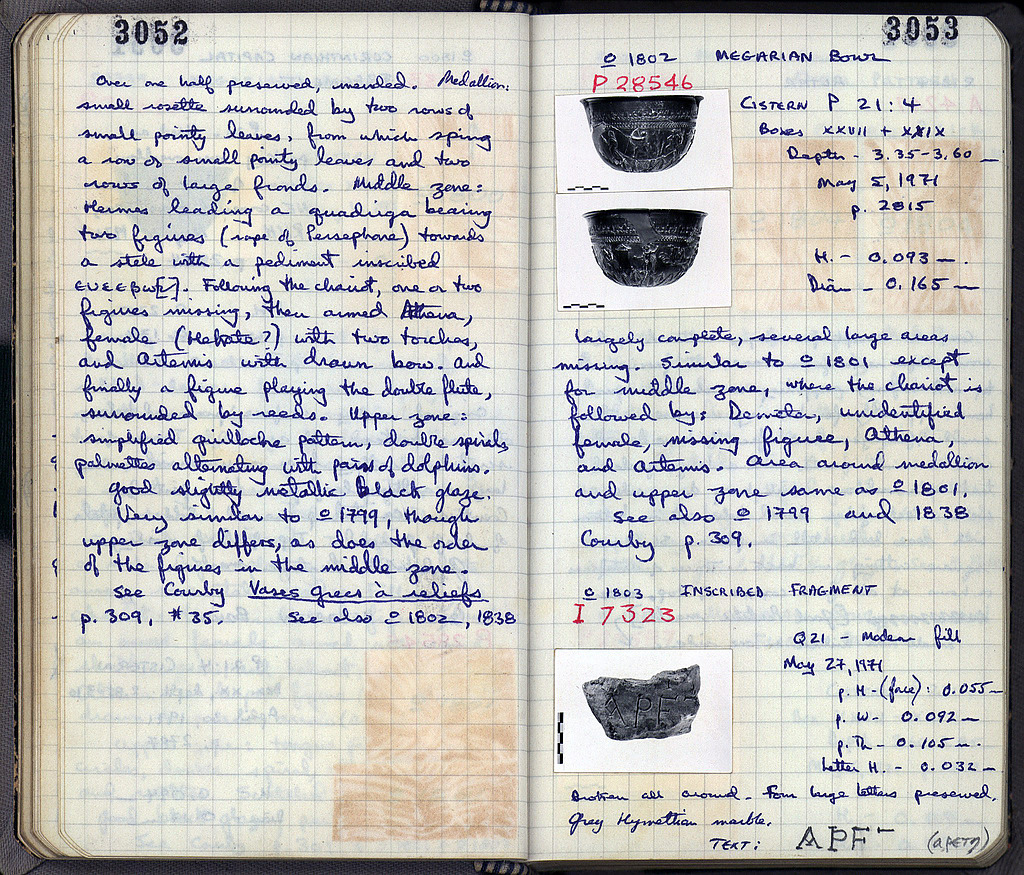 3052
Over one half preserved, mended. Medallion:
small rosette surounded by two rows of
small pointy leaves, from which spring
a row of small pointy leaves and two
rows of large fronds. Middle zone:
Hermes leading a quadriga bearing
two figures (rape of Persephone) towards
a stele with a pediment inscribed
ΕΥΣΕΒΩ[Σ]. Following the chariot, one or two
figures missing, then armed Athena,
female (Hekate?) with two torches,
and Artemis with drawn bow. and
finally a figure playing the double flute,
surrounded by reeds. Upper zone:
simplified guilloche pattern, double spirals,
palmettes alternating with pairs of dolphins.
Good slightly metallic black glaze.
Very similar to O 1799, though
upper zone differs, as does the order
of the figures in the middle zone.
See Courby Vases grecs à reliefs
p. 309, #35. See also O 1802, 1838
3053
O 1802 MEGARIAN BOWL
P 28546
CISTERN P 21:4
Boxes XXVII + XXIX
Depth - 3.35-3.60
May 5, 1971
p. 2815
H. - 0.093 m.
Diam - 0.165 m
Largely complete, several large areas
missing. Similar to O 1801 except
for middle zone, where the chariot is
followed by: Demeter, unidentified
female, missing figure, Athena,
and Artemis. Area around medallion
and upper zone same as O 1801.
See also O 1799 and 1838
Courby p. 309.
O 1803 INSCRIBED FRAGMENT
I 7323
Q21 - Modern fill
May 27, 1971
p. H - (face): 0.055 m
p. W - 0.092 m
p. Th - 0.105 m.
Letter H. - 0.032 m
Broken all around. Four large letters preserved.
Grey Hymettian marble.
TEXT: ΑΡΕΤ (αρετη)